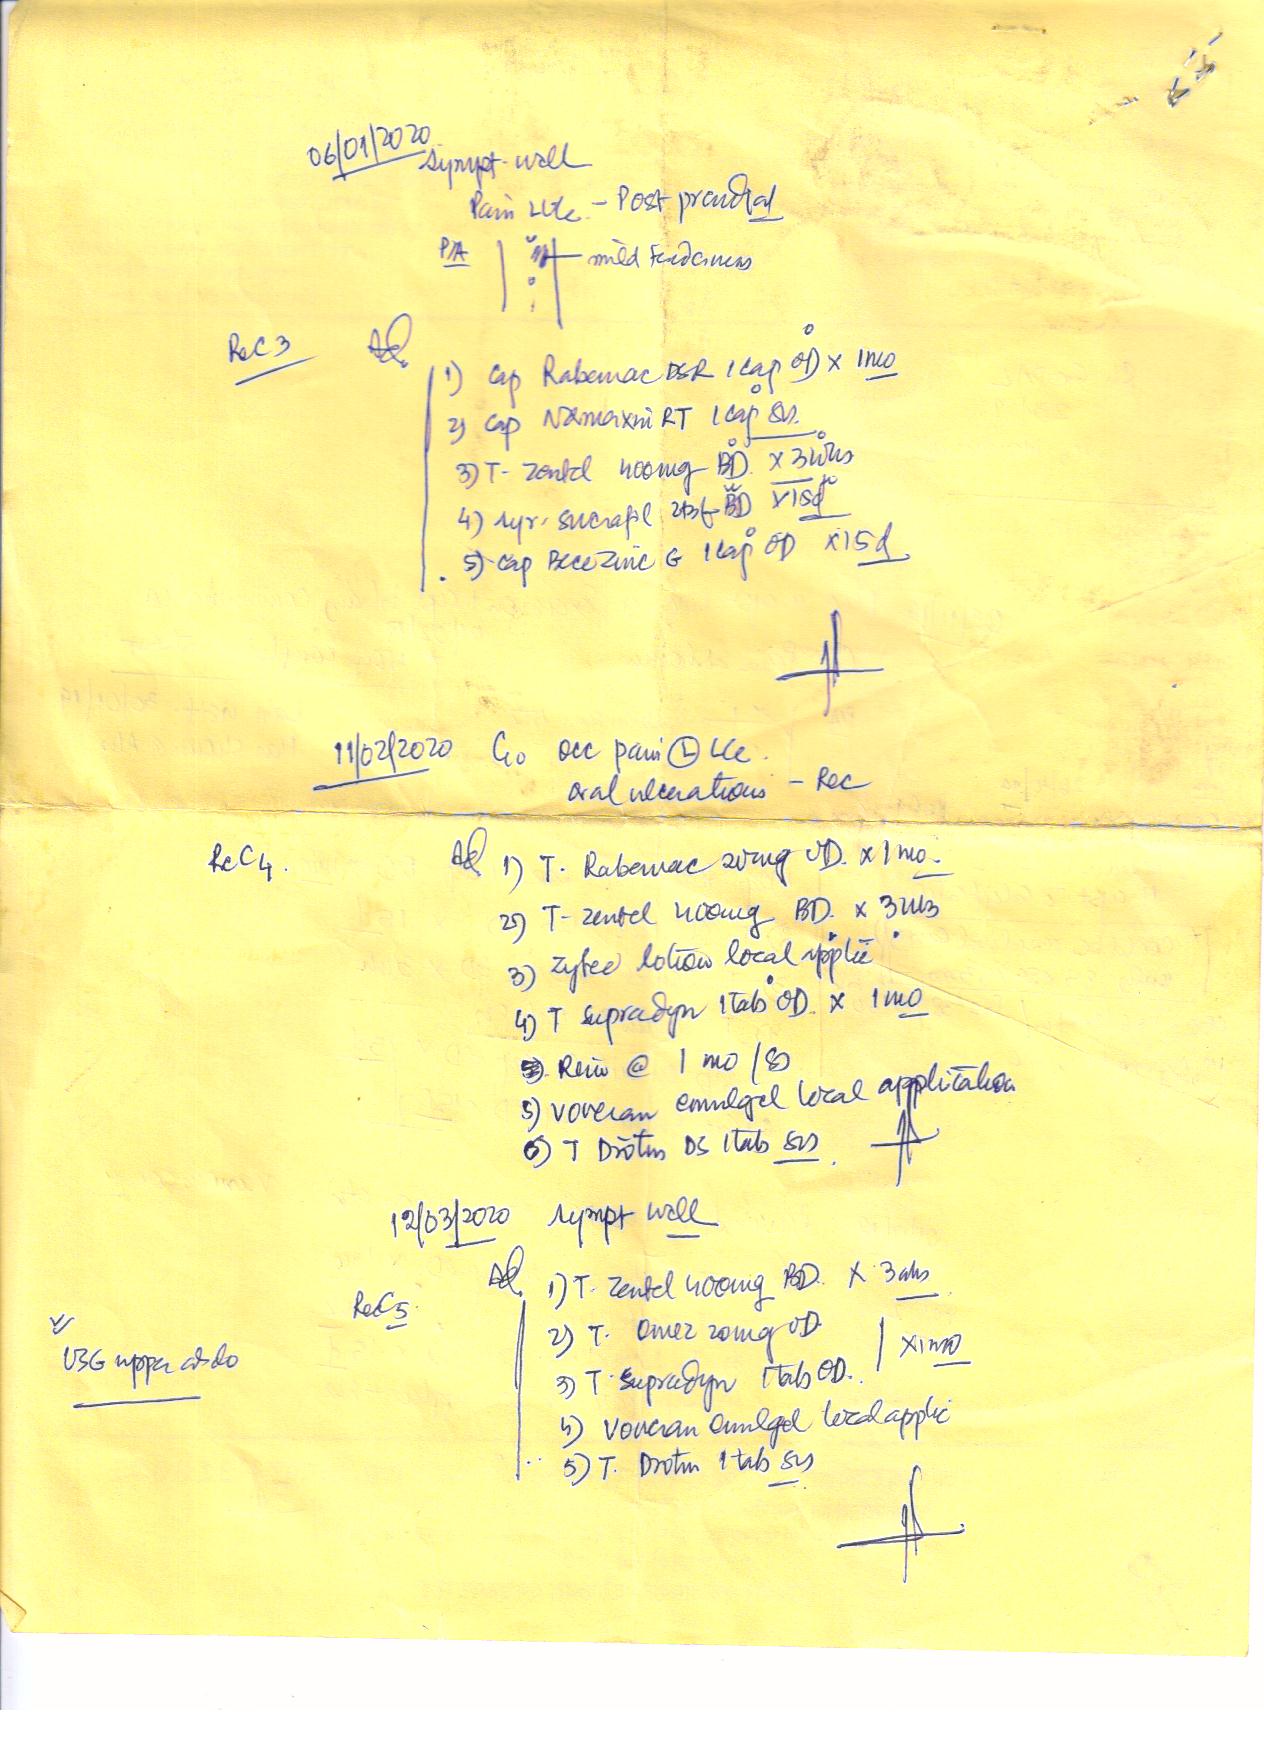 06/01/2020
Sympt. well
Pain - Post prandial
P/A mild Tenderness
Rec 3 Ad.
1) cap Rabemac DSR 1 cap OD x 1 mo
2) cap RT 1 cap sos.
3) T- Zentel 400mg BD. x 3 wks
4) syr. sucrafil BD x 15d
5) cap Becezinc G 1 cap OD x 15d
11/02/2020 C/o occ pain Ⓛ
oral ulcerations - Rec
Rec 4. Ad
1) T. Rabemac 20mg OD. x 1 mo.
2) T- Zentel 400mg BD. x 3 wks
3) Zytee lotion local applic
4) T Supradyn 1 tab OD. x 1 mo
Reviw @ 1 mo / SOS
5) Voveran emulgel local application
6) T Drotin DS 1 tab sos
12/03/2020 sympt well
Ad.
1) T. Zentel 400mg BD. x 3 wks
Rec 5.
2) T. Omez 20mg OD
x 1 mo
USG upper abdo
3) T. Supradyn 1 tab OD.
4) Voveran emulgel local applic
5) T. Drotin 1 tab sos